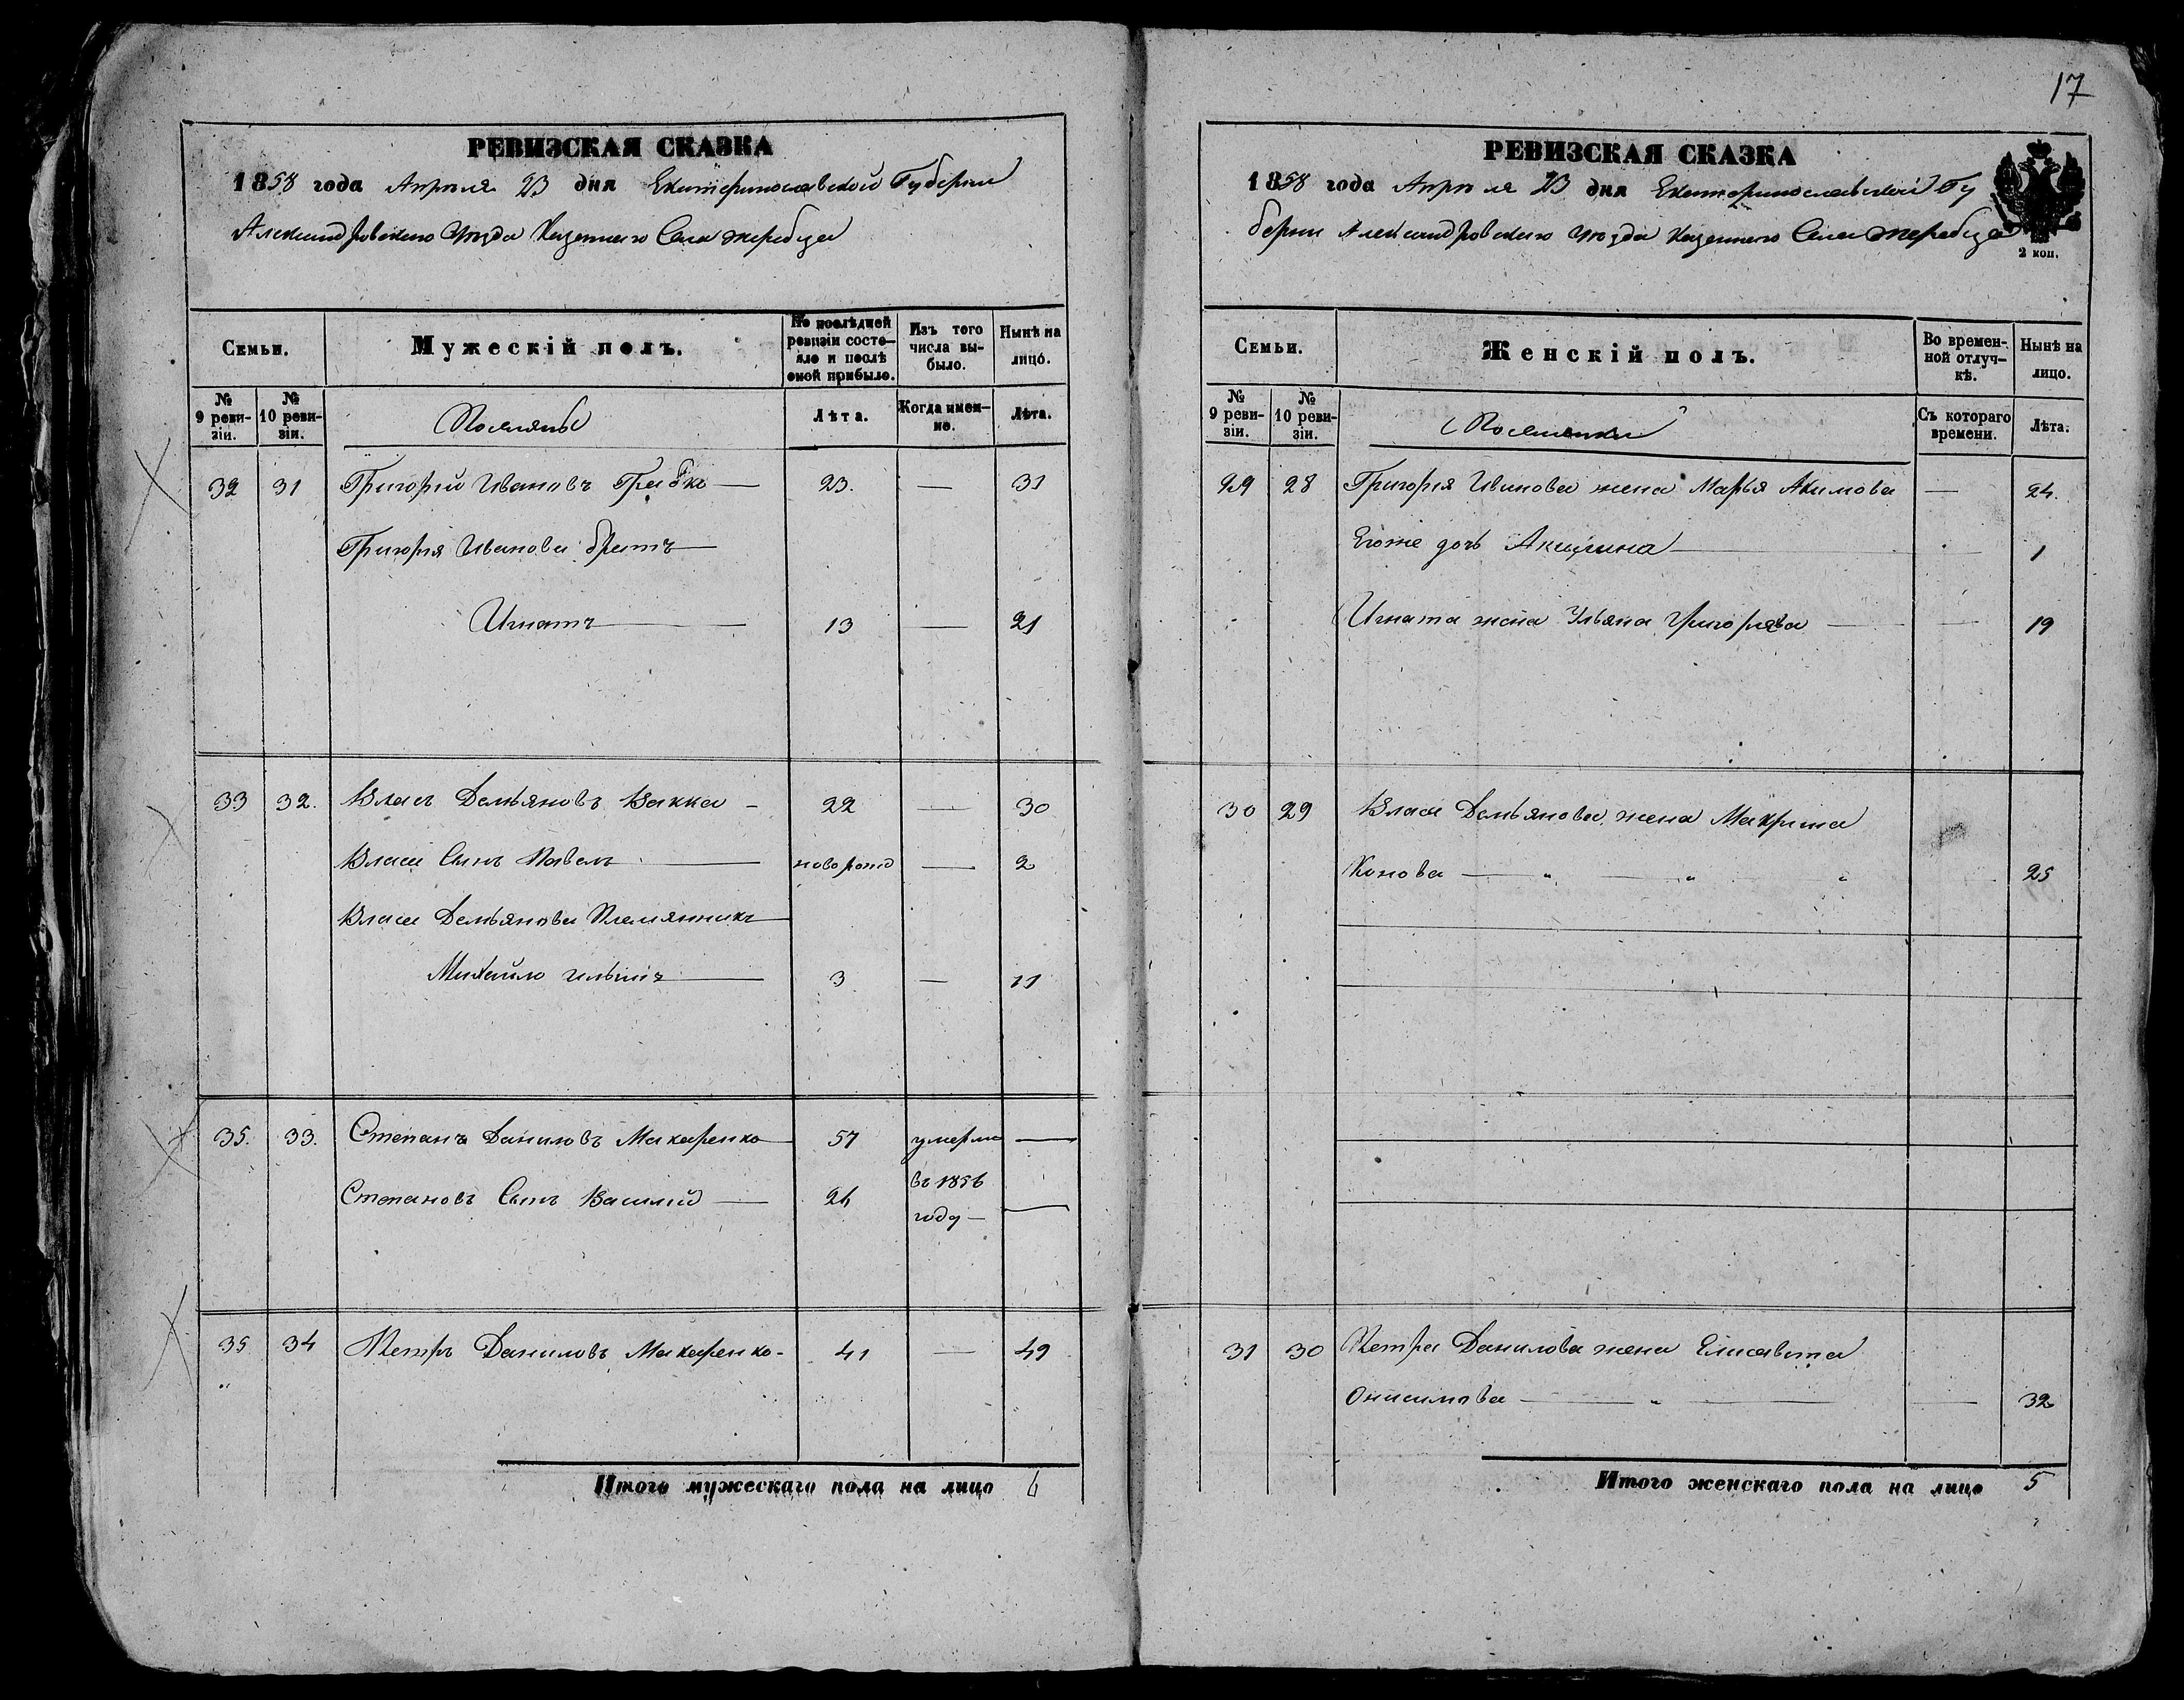 17
РЕВИЗСКАЯ СКАЗКА
1858 года Апреля 23 дня Екатеринославской Губернии
Александровского Уезда Казенного Села Жеребца
Семьи.
Мужескій полъ.
По послѣдней ревизіи состояло и послѣ оной прибыло.
Изъ того числа выбыло.
Нынѣ на лицо.
№ 9 ревизіи.
№ 10 ревизіи.
Поселяне
Лѣта.
Когда именно.
Лѣта.
32 31 Григорий Ивановъ — 23. — 31
Григория Иванова братъ —
Игнатъ — 13 — 21
33 32. Власъ Демьяновъ Вакка - 22 — 30
Власа Сынъ Павелъ — новорожд — 2
Власа Демьянова Племянникъ —
Михайло Ильинъ — 3 — 11
35. 33. Степанъ Даниловъ Макаренко — 57 умерли —
Степановъ Сынъ Василий — 26 въ 1856
году — —
35 34 Петръ Даниловъ Макаренко - 41 — 49
"
Итого мужескаго пола на лицо 6
РЕВИЗСКАЯ СКАЗКА
1858 года Апреля 23 дня Екатеринославской Гу
бернии Александровского Уезда Казенного Села Жеребца
2 коп.
Семьи.
Женскій полъ.
Во временной отлучкѣ.
Нынѣ на лицо.
№ 9 ревизіи.
№ 10 ревизіи.
Поселянки
Съ котораго времени.
Лѣта.
29 28 Григория Иванова жена Марья Акимова — 24.
Егоже дочь Акилина — — 1
Игната жена Ульяна Григорьева — — 19
30 29 Власа Демьянова жена Макрина
Конова — " — " — " 25
31 30 Петра Данилова жена Елисавета
Онисимова — " — — 32
Итого женскаго пола на лицо 5